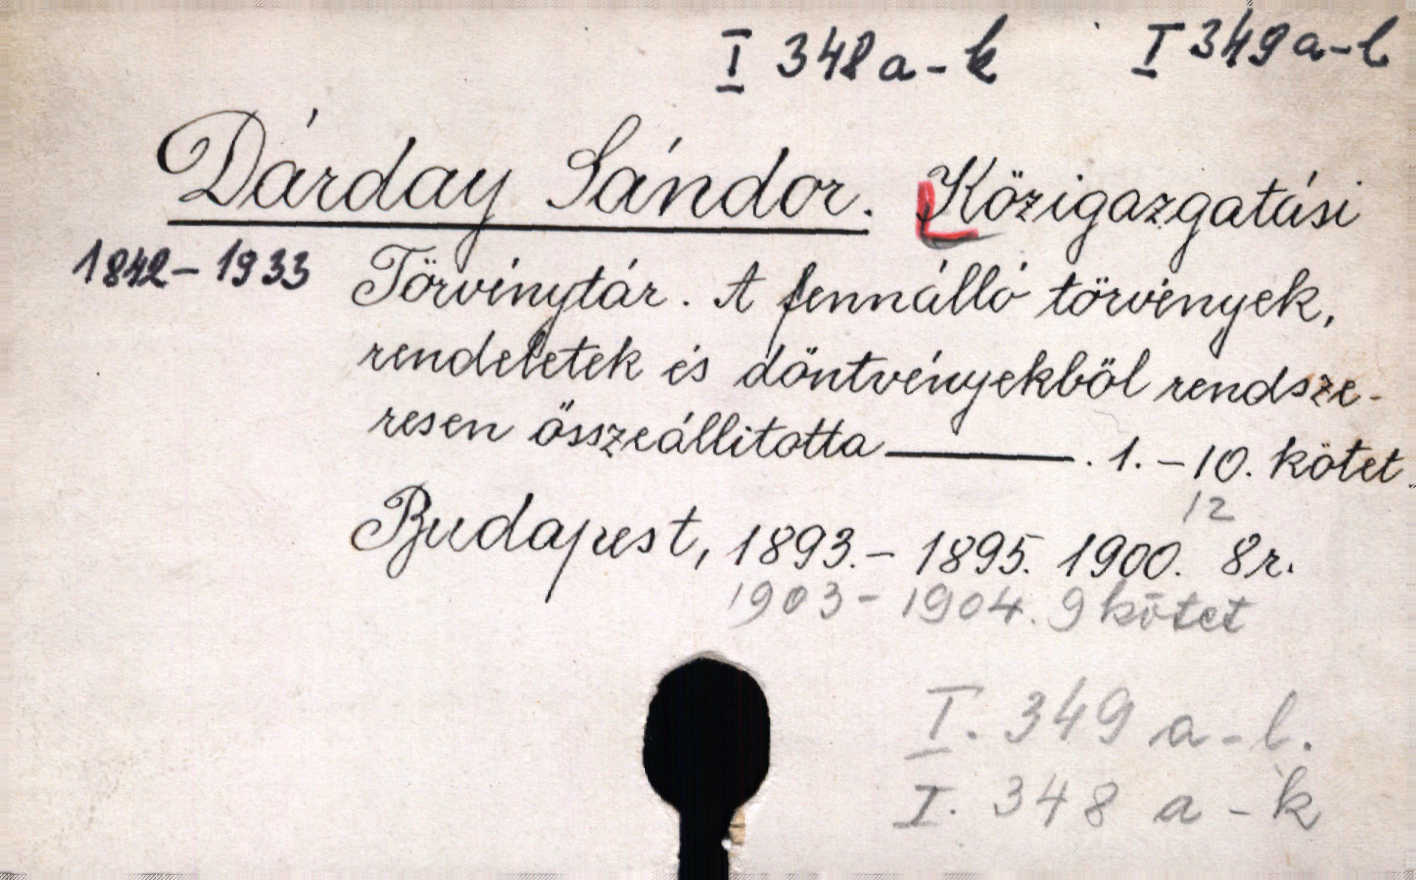 I 348 a-k I 349 a-l
Dárday Sándor. Közigazgatási
1842-1933 Törvénytár. A fennálló törvények,
rendeletek és döntvényekből rendsze-
resen összeállitotta ———. 1.-10. kötet.
12
Budapest, 1893.- 1895. 1900. 8r.
1903-1904. 9 kötet
I. 349 a-l.
I. 348 a-k